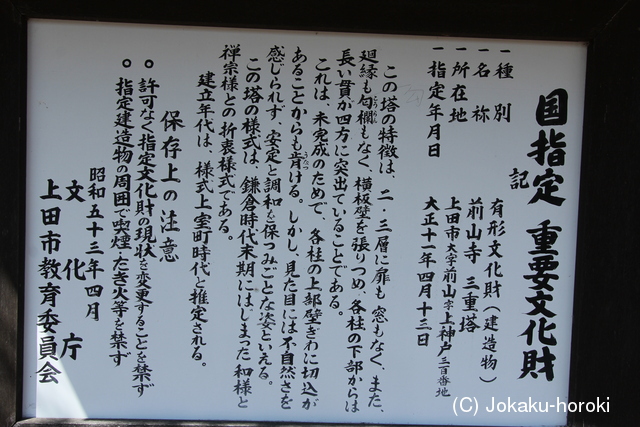 国指定 重要文化財
記
一種別 有形文化財（建造物）
一名称 前山寺 三重塔
一所在地 上田市大字前山字上神戸三百番地
一指定年月日 大正十一年四月十三日
この塔の特徴は、二・三層に扉も窓もなく、また、
廻縁も勾欄もなく、横板壁を張りつめ、各柱の下部からは
長い貫が四方に突出ていることである。
これは、未完成のためで、各柱の上部壁ぎわに切込が
あることからも肯ける。しかし、見た目には不自然さを
感じられず、安定と調和を保つみごとな姿といえる。
この塔の様式は、鎌倉時代末期にはじまった和様と
禅宗様との折衷様式である。
建立年代は、様式上室町時代と推定される。
保存上の注意
○許可なく指定文化財の現状を変更することを禁ず
○指定建造物の周囲で喫煙・たき火等を禁ず
昭和五十三年四月
文化庁
上田市教育委員会
(C) Jokaku-horoki